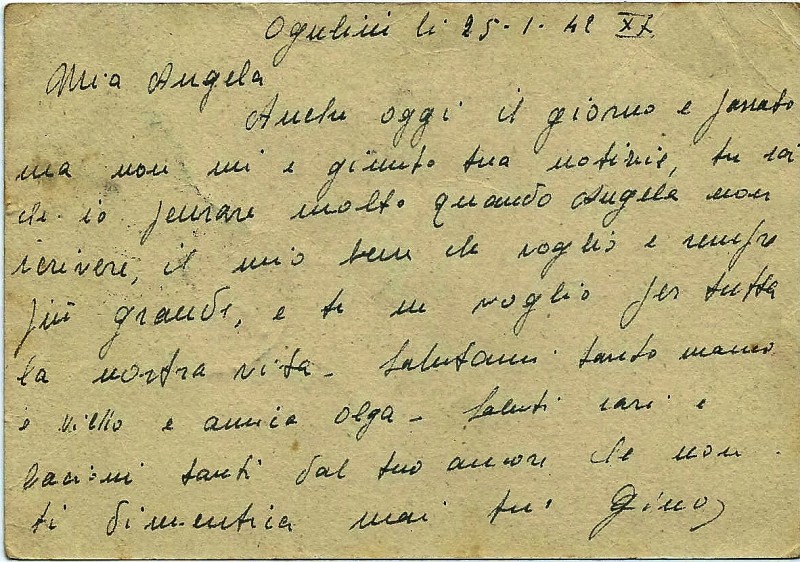 Ogulini li 25-1-42 XX
Mia Angela
Anche oggi il giorno e passato
ma non mi e giunto tua notizie, tu sai
che io pensare molto quando Angela non
scrivere, il mio bene che voglio e sempre
più grande, e ti ne voglio per tutta
la nostra vita - Salutami tanto mamo
e Vilko e amica Olga - Saluti cari e
bacioni tanti dal tuo amore che non
ti dimentica mai tuo Gino